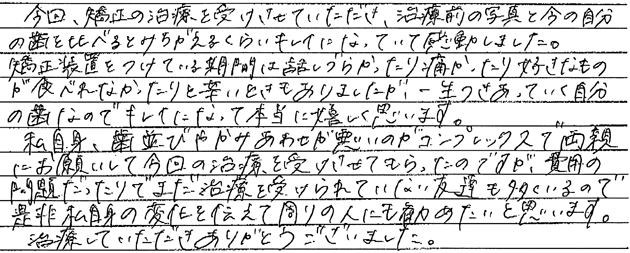 今回、矯正の治療を受けさせていただき、治療前の写真と今の自分
の歯を比べるとみちがえるくらいキレイになっていて感動しました。
矯正装置をつけている期間は話しづらかったり痛かったり好きなもの
が食べれなかったりと辛いときもありましたが、一生つきあっていく自分
の歯なのでキレイになって本当に嬉しく思います。
私自身、歯並びやかみあわせが悪いのがコンプレックスで両親
にお願いして今回の治療を受けさせてもらったのですが、費用の
問題だったりでまだ治療を受けられていない友達も多くいるので
是非私自身の変化を伝えて周りの人にも勧めたいと思います。
治療していただきありがとうございました。